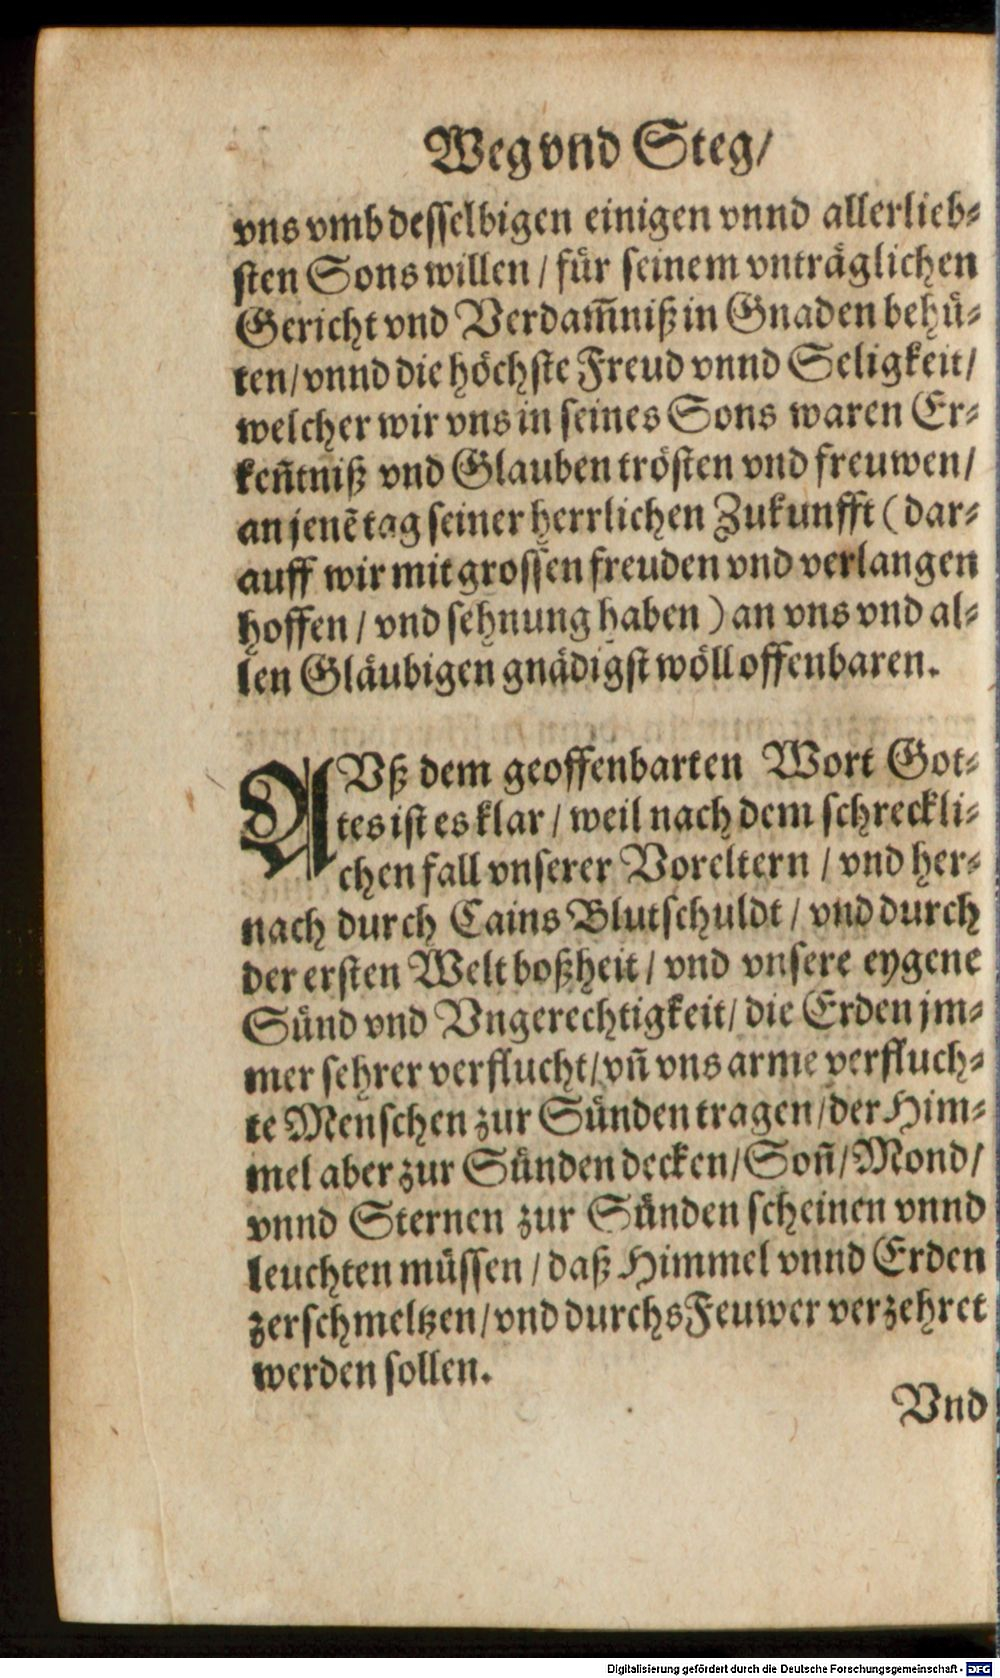 Weg vnd Steg/
vns vmb desselbigen einigen vnnd allerlieb-
sten Sons willen / für seinem vnträglichen
Gericht vnd Verdam̄niß in Gnaden behü-
ten/ vnnd die höchste Freud vnnd Seligkeit/
welcher wir vns in seines Sons waren Er-
keñtniß vnd Glauben trösten vnd freuwen/
an jenẽ tag seiner herrlichen Zukunfft (dar-
auff wir mit grossen freuden vnd verlangen
hoffen / vnd sehnung haben) an vns vnd al-
len Gläubigen gnädigst wöll offenbaren.
AVß dem geoffenbarten Wort Got-
tes ist es klar / weil nach dem schreckli-
chen fall vnserer Voreltern / vnd her-
nach durch Cains Blutschuldt / vnd durch
der ersten Welt boßheit / vnd vnsere eygene
Sünd vnd Vngerechtigkeit/ die Erden jm-
mer sehrer verflucht/ vñ vns arme verfluch-
te Menschen zur Sünden tragen/ der Him-
mel aber zur Sünden decken/ Soñ/ Mond/
vnnd Sternen zur Sünden scheinen vnnd
leuchten müssen / daß Himmel vnnd Erden
zerschmeltzen/ vnd durchs Feuwer verzehret
werden sollen.
Vnd
Digitalisierung gefördert durch die Deutsche Forschungsgemeinschaft - DFG